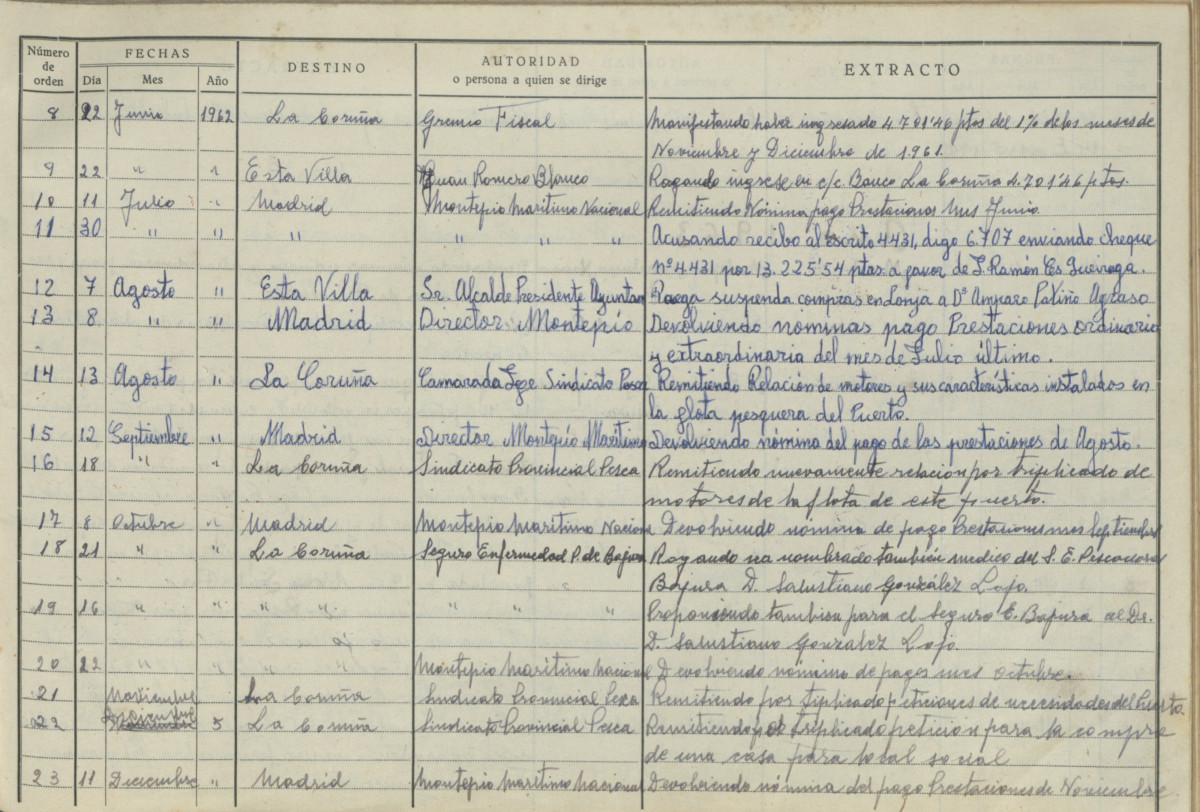 Número de orden FECHAS DESTINO AUTORIDAD o persona a quien se dirige EXTRACTO
Día Mes Año
8 22 Junio 1962 La Coruña Gremio Fiscal Manifestando haber ingresado 4.701'46 ptas del 1% de los meses de
Noviembre y Diciembre de 1961.
9 22 " " Esta Villa Juan Romero Blanco Rogando ingrese en c/c. Banco La Coruña 4.701'46 ptas.
10 11 Julio " Madrid Montepio Maritimo Nacional Remitiendo Nómina pago Prestaciones mes Junio.
11 30 " " " " " " Acusando recibo al escrito 4431, digo 6.707 enviando cheque
nº 4.431 por 13.225'54 ptas. a favor de J. Ramón
12 7 Agosto " Esta Villa Sr. Alcalde Presidente Ayuntam Ruega suspenda compras en Lonja a Dª Amparo Patiño
13 8 " " Madrid Director Montepío Devolviendo nóminas pago Prestaciones ordinario
y extraordinaria del mes de Julio último.
14 13 Agosto " La Coruña Camarada Jefe Sindicato Remitiendo Relación de motores y sus características instalados en
la flota pesquera del Puerto.
15 12 Septiembre " Madrid Director Montepío Maritimo Devolviendo nómina del pago de las prestaciones de Agosto.
16 18 " " La Coruña Sindicato Provincial Pesca Remitiendo nuevamente relación por triplicado de
motores de la flota de este puerto.
17 8 Octubre " Madrid Montepio Maritimo Nacional Devolviendo nómina de pago Prestaciones mes Septiembre
18 21 " " La Coruña Seguro Enfermedad P. de Bajura Rogando sea nombrado también medico del S. E. Pescadores
Bajura D. Salustiano González Lojo.
19 16 " " " " " " " Proponiendo tambien para el Seguro E. Bajura al Dr.
D. Salustiano Gonzalez Lojo.
20 22 " " " Montepio Maritimo Nacional Devolviendo nómina de pagos mes octubre.
21 Noviembre La Coruña Sindicato Provincial Pesca Remitiendo por triplicado peticiones de necesidades del Puerto.
22 5 La Coruña Sindicato Provincial Pesca Remitiendo por triplicado petición para la compra
de una casa para local social
23 11 Diciembre " Madrid Montepio Maritimo Nacional Devolviendo nómina del pago Prestaciones de Noviembre